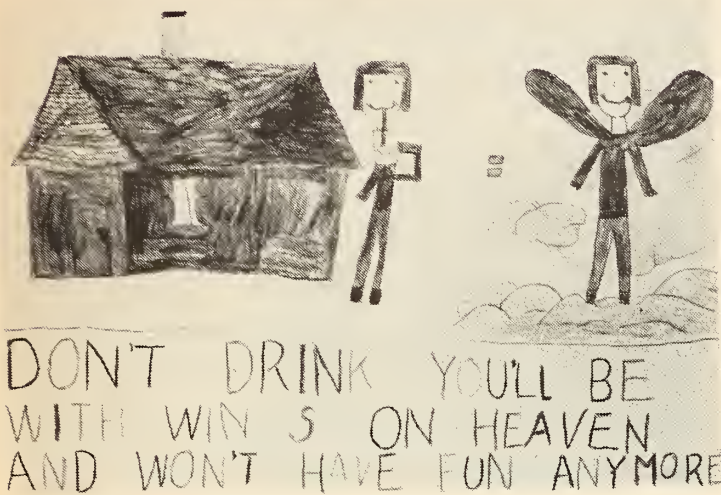 DON'T DRINK YOU'LL BE
WITH WIN S ON HEAVEN
AND WON'T HAVE FUN ANYMORE